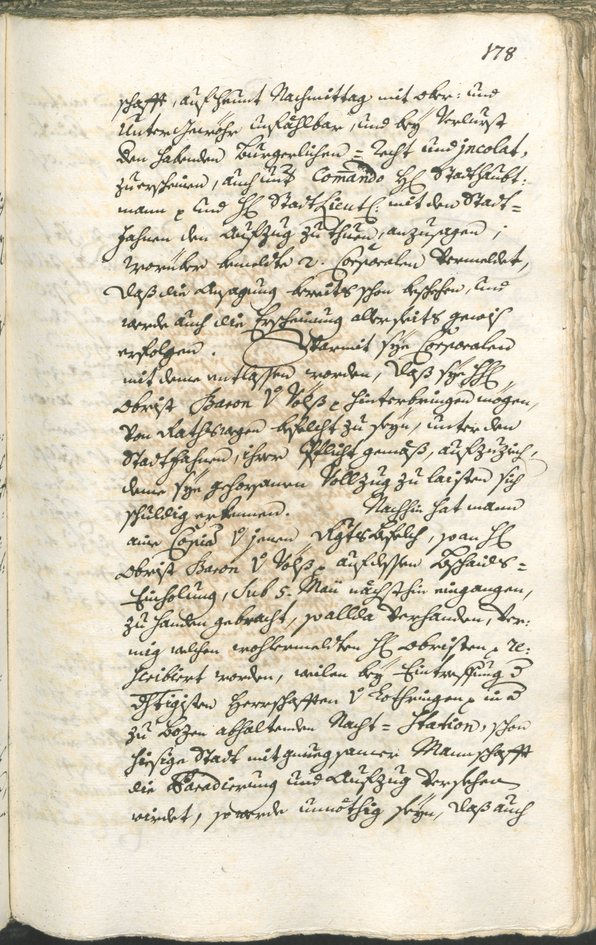 178
schafft, auf heunt Nachmittag mit ober: und
Untergewöhr unfählbar, und bey Verlurst
den habenden Bürgerlichen = Recht und incolat,
zuerscheinen, auch unß Comando H: Stadthaubt:
mann p und H: Stadt Lieut: mit den Stadt=
fahnen den Aufzug zu thuen, anzusagen;
worüber bemeldte 2. Corporalen vermeldet,
daß die Ansagung bereits schon beschehen, und
werde auch die Erscheinung allerseits gewis
erfolgen. Warmit sye Corporalen
mit deme entlassen worden, daß sye HH:
Obrist Baron v Völß p hinterbringen mögen,
von Rathswegen befelcht zu seyn, unter den
Stadtfahnen, ihrer Pflicht gemäß, aufzuzich,
deme sye gehorsamen Vollzug zu laisten sich
schuldig erkennen. Nachhin hat mann
aine Copia v jenen Befelch, so an H:
Obrist Baron v Völß p auf dessen Beschaids=
Einhollung, sub 5. Maii nächsthin eingangen,
zu handen gebracht, so allda verhanden, ver:
mög welchen wohlermeldten H: Obristen p 2c:
worden, weilen bey Eintreffung
Herrschafften v Lothringen p in
zu Bozen abhaltenden Nacht= Station, schon
hiesige Stadt mit gnuegsamer Mannschafft
die Paradierung und Aufzug versehen
wirdet, so werde unnöthig seyn, daß auch